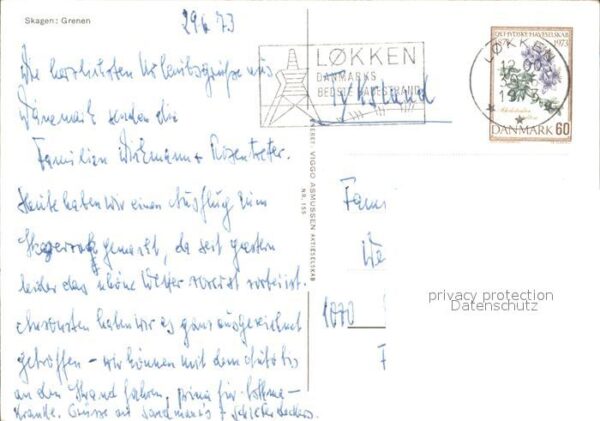 Skagen: Grenen
29.6.73
Die herzlichsten Urlaubsgrüße aus
Dänemark senden die
Familien Wichmann + Rosentreter.
Heute haben wir einen Ausflug zum
Skagerrag gemacht, da seit gestern
leider das schöne Wetter vorerst vorbei ist.
Ansonsten haben wir es ganz ausgezeichnet
getroffen – wir können mit dem Auto bis
an den Strand fahren, prima für
Kranke. Grüsse an
ERET: VIGGO ASMUSSEN AKTIESELSKAB
NR. 155
LØKKEN
DANMARKS
BEDSTE BADESTRAND
LØKKEN
12.00
1973
HAVESELSKAB
1973
DANMARK 60
Fami
1070
privacy protection
Datenschutz